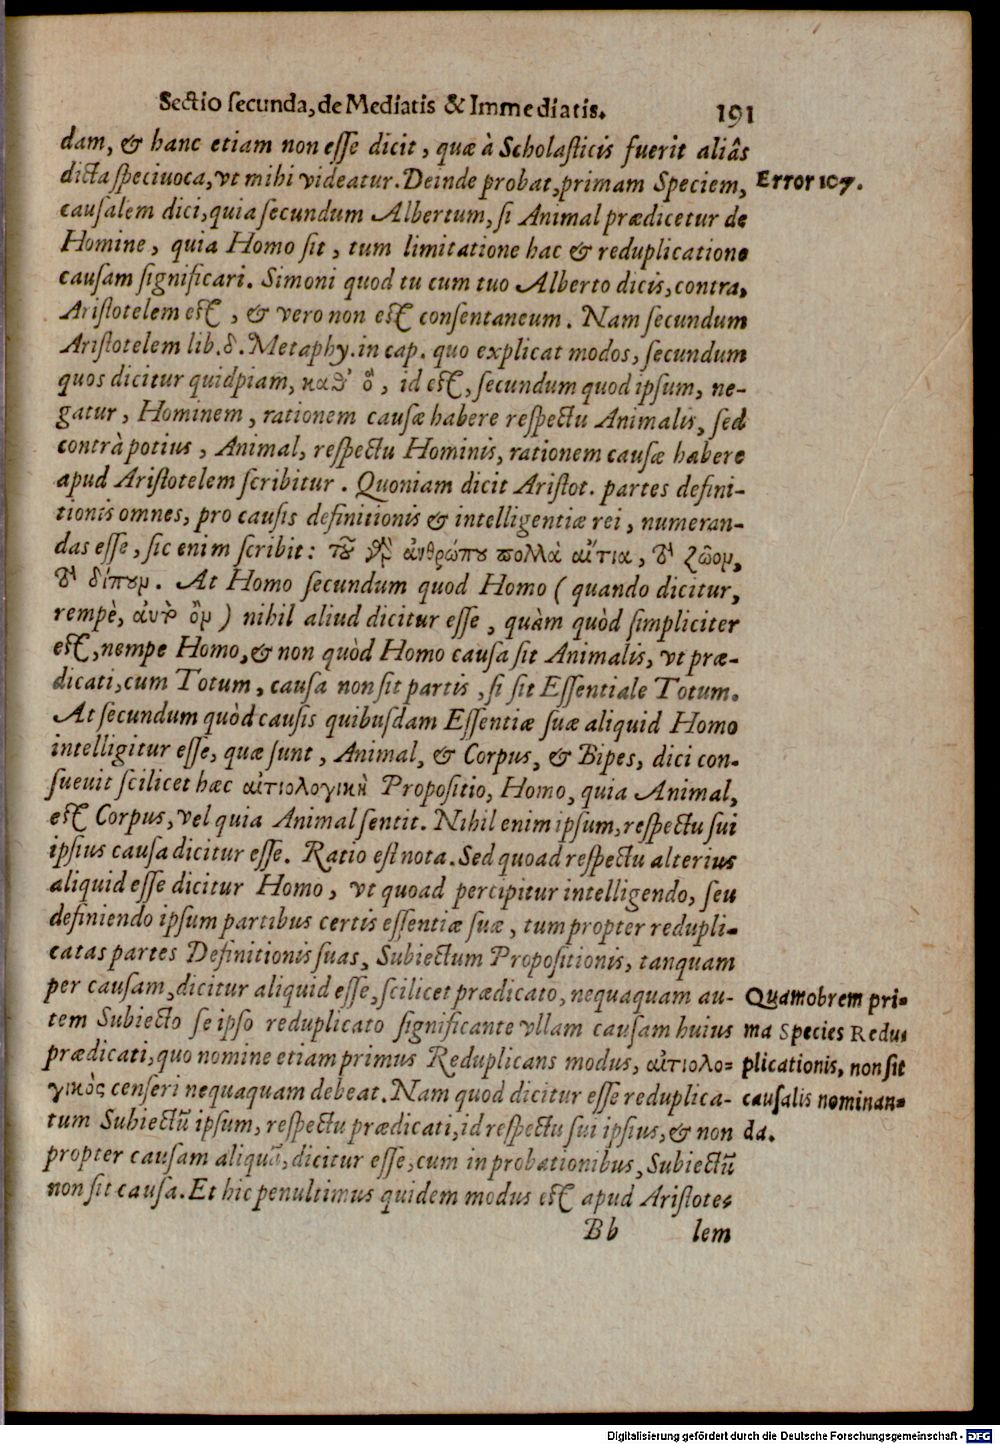 Sectio secunda, de Mediatis & Immediatis. 191
dam, & hanc etiam non esse dicit, quæ à Scholasticis fuerit aliâs
dicta speciuoca, vt mihi videatur. Deinde probat, primam Speciem,
Error 107.
causalem dici, quia secundum Albertum, si Animal prædicetur de
Homine, quia Homo sit, tum limitatione hac & reduplicatione
causam significari. Simoni quod tu cum tuo Alberto dicis, contra,
Aristotelem est, & vero non est consentaneum. Nam secundum
Aristotelem lib. δ. Metaphy. in cap. quo explicat modos, secundum
quos dicitur quidpiam, καθ’ ὃ, id est, secundum quod ipsum, ne-
gatur, Hominem, rationem causæ habere respectu Animalis, sed
contrà potius, Animal, respectu Hominis, rationem causæ habere
apud Aristotelem scribitur. Quoniam dicit Aristot. partes defini-
tionis omnes, pro causis definitionis & intelligentiæ rei, numeran-
das esse, sic enim scribit: τοῦ γὰρ ἀνθρώπου πολλὰ αἴτια, τὸ ζῶον,
τὸ δίπουν. At Homo secundum quod Homo (quando dicitur,
rempè, αὐτὸ ὂν) nihil aliud dicitur esse, quàm quòd simpliciter
est, nempe Homo, & non quòd Homo causa sit Animalis, vt præ-
dicati, cum Totum, causa non sit partis, si sit Essentiale Totum.
At secundum quòd causis quibusdam Essentiæ suæ aliquid Homo
intelligitur esse, quæ sunt, Animal, & Corpus, & Bipes, dici con-
sueuit scilicet hæc αἰτιολογικὴ Propositio, Homo, quia Animal,
est Corpus, vel quia Animal sentit. Nihil enim ipsum, respectu sui
ipsius causa dicitur esse. Ratio est nota. Sed quoad respectu alterius
aliquid esse dicitur Homo, vt quoad percipitur intelligendo, seu
definiendo ipsum partibus certis essentiæ suæ, tum propter redupli-
catas partes Definitionis suas, Subiectum Propositionis, tanquam
per causam, dicitur aliquid esse, scilicet prædicato, nequaquam au-
tem Subiecto se ipso reduplicato significante vllam causam huius
prædicati, quo nomine etiam primus Reduplicans modus, αἰτιολο-
γικὸς censeri nequaquam debeat. Nam quod dicitur esse reduplica-
tum Subiectū ipsum, respectu prædicati, id respectu sui ipsius, & non
propter causam aliquā, dicitur esse, cum in probationibus, Subiectū
non sit causa. Et hic penultimus quidem modus est apud Aristote-
Quamobrem pri-
ma Species Redu-
plicationis, non sit
causalis nominan-
da.
Bb lem
Digitalisierung gefördert durch die Deutsche Forschungsgemeinschaft - DFG